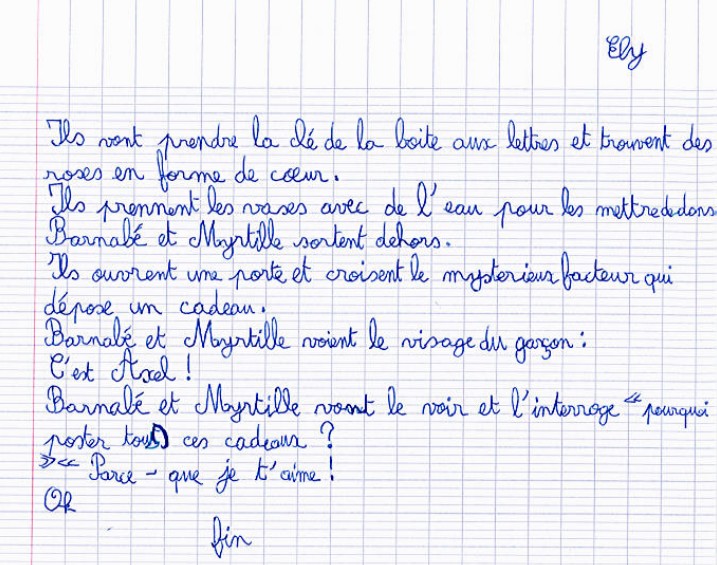 Ely
Ils vont prendre la clé de la boite aux lettres et trouvent des
roses en forme de cœur.
Ils prennent les vases avec de l'eau pour les mettre dedans
Barnabé et Myrtille sortent dehors.
Ils ouvrent une porte et croisent le mysterieux facteur qui
dépose un cadeau.
Barnabé et Myrtille voient le visage du garçon :
C'est Axel !
Barnabé et Myrtille vont le voir et l'interroge « pourquoi
poster tous ces cadeaux ?
»« Parce - que je t'aime !
Ok
fin